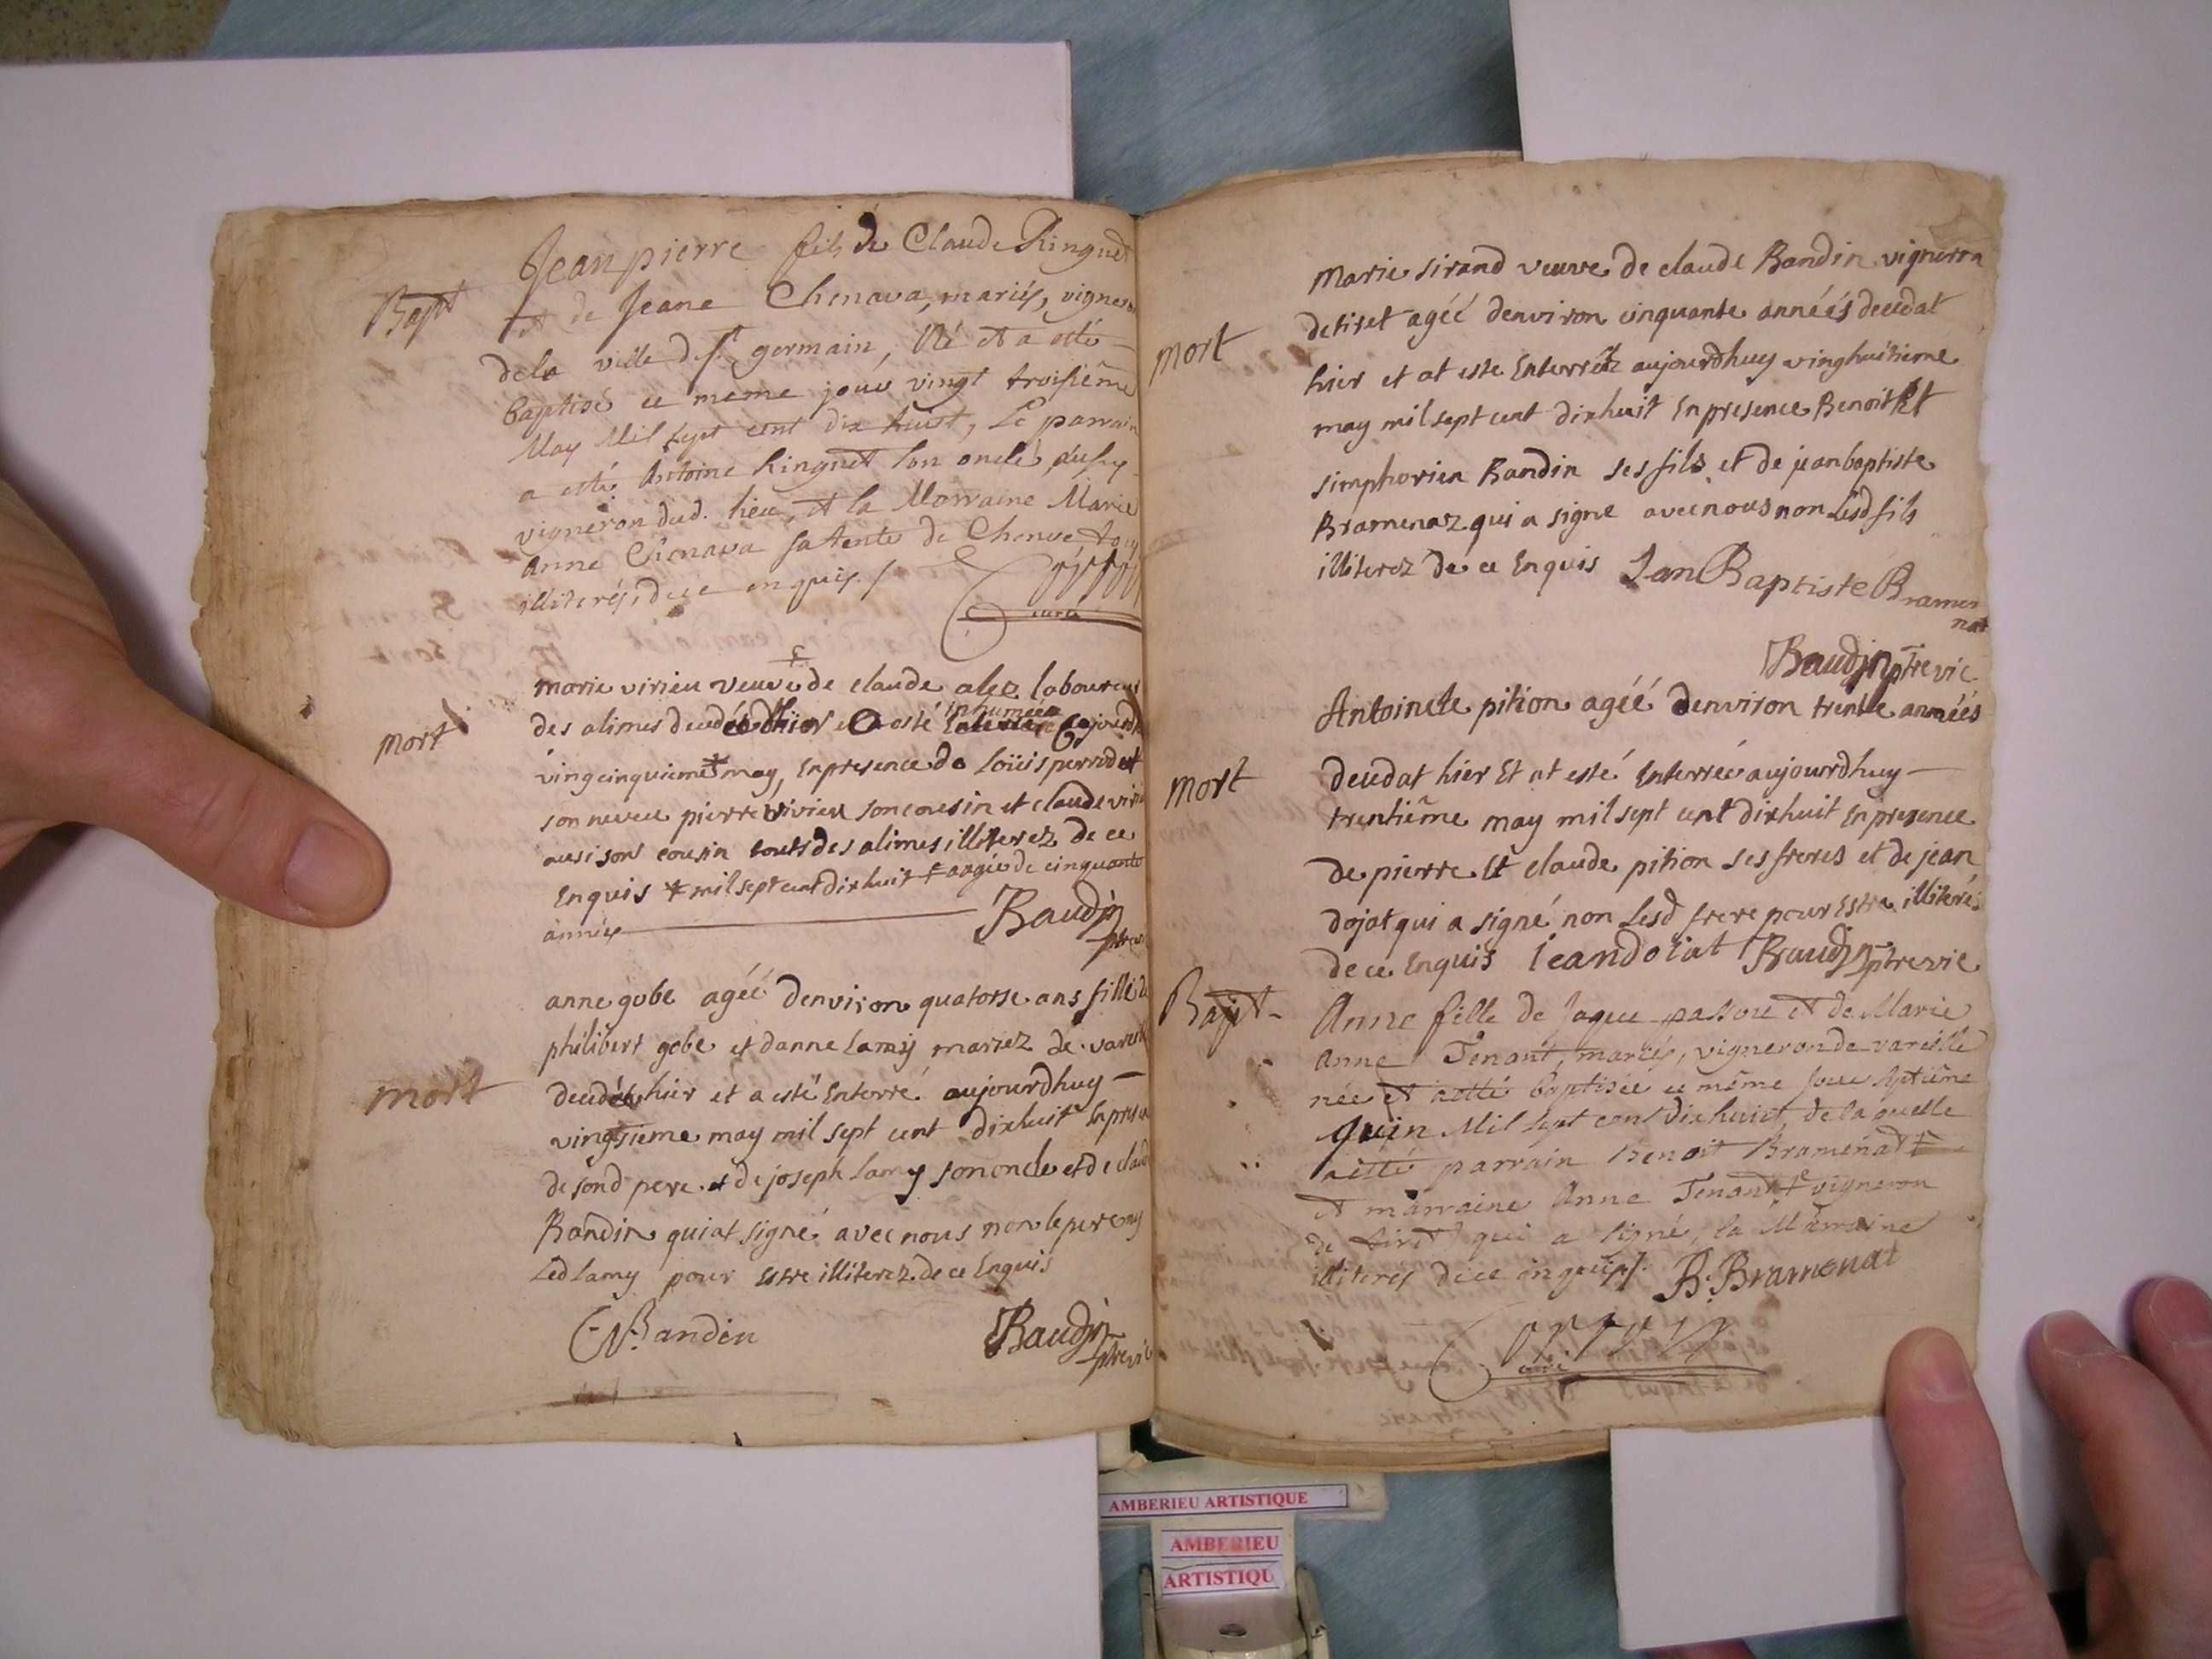 Bapt
Jean pierre fils de Claude Ringuet
et de Jeane Chenava, mariés, vigneron
dela ville de St germain, Né et a etté
baptisé ce meme jour vingt troisiême
May Mil sept cent dix huit, Le parrain
a etté Antoine Ringuet son oncle
vigneron dud. lieu, et la Marraine Marie
Anne Chenava sa tente de Chenve
illiterés, dece enquis
curé
mort
marie virieu veuve de claude alez laboureur
des alimes deceédé hier et a esté inhumée ajourdh
vingcinquieme may, Enpresence de Loüis perrodet
son neveu pierre virieu son cousin et claude virieu
ausi son cousin touts des alimes illiterez de ce
Enquis mil sept cent dixhuit aagée de cinquante
années
Baudin
mort
anne gobe agéé denviron quatorse ans fille de
philibert gobe et danne Lamy mariez de vareille
decedét hier et a esté Enterré aujourdhuy
vingtsieme may mil sept cent dixhuit Enpresence
de sond pere et de joseph Lamy son oncle et de claude
Bandin quiat signé avec nous non le pere ny
Led Lamy pour Estre illiterez de ce Enquis
C. Bandin
Baudin ptrevic
mort
Marie sirand veuve de claude Bandin vigneron
detiret agéé denviron cinquante annéés decedat
hier et at este Enterréé aujourdhuy vinghuitieme
may mil sept cent dixhuit Enpresence Benoit Et
simphorien Bandin ses fils et de jeanbaptiste
Bramenaz qui a signe avec nous non Lesd fils
illiterez de ce Enquis Jan Baptiste Bramen
nat
Baudin ptrevic
mort
Antoinete pition agéé denviron trente annéés
decedat hier Et at esté Enterreé aujourdhuy
trentiême may mil sept cent dixhuit Enpresence
de pierre Et claude pition ses freres et de jean
dojat qui a signé non Lesd frere pour Estre illiterés
dece Enquis Jeandoiat Baudin ptrevic
Bapt
Anne fille de Jaque passou et de Marie
Anne Tenant, mariés, vigneron de vareille
née et aetté baptisée ce même jour septiême
Juin Mil sept cent dixhuict, de laquelle
aetté parrain Benoit Bramenad
et marraine Anne Tenand vigneron
de tiret qui a signé, la Marraine
illiteres dece enquis B. Bramenat
curé
AMBERIEU ARTISTIQUE
AMBERIEU
ARTISTIQU